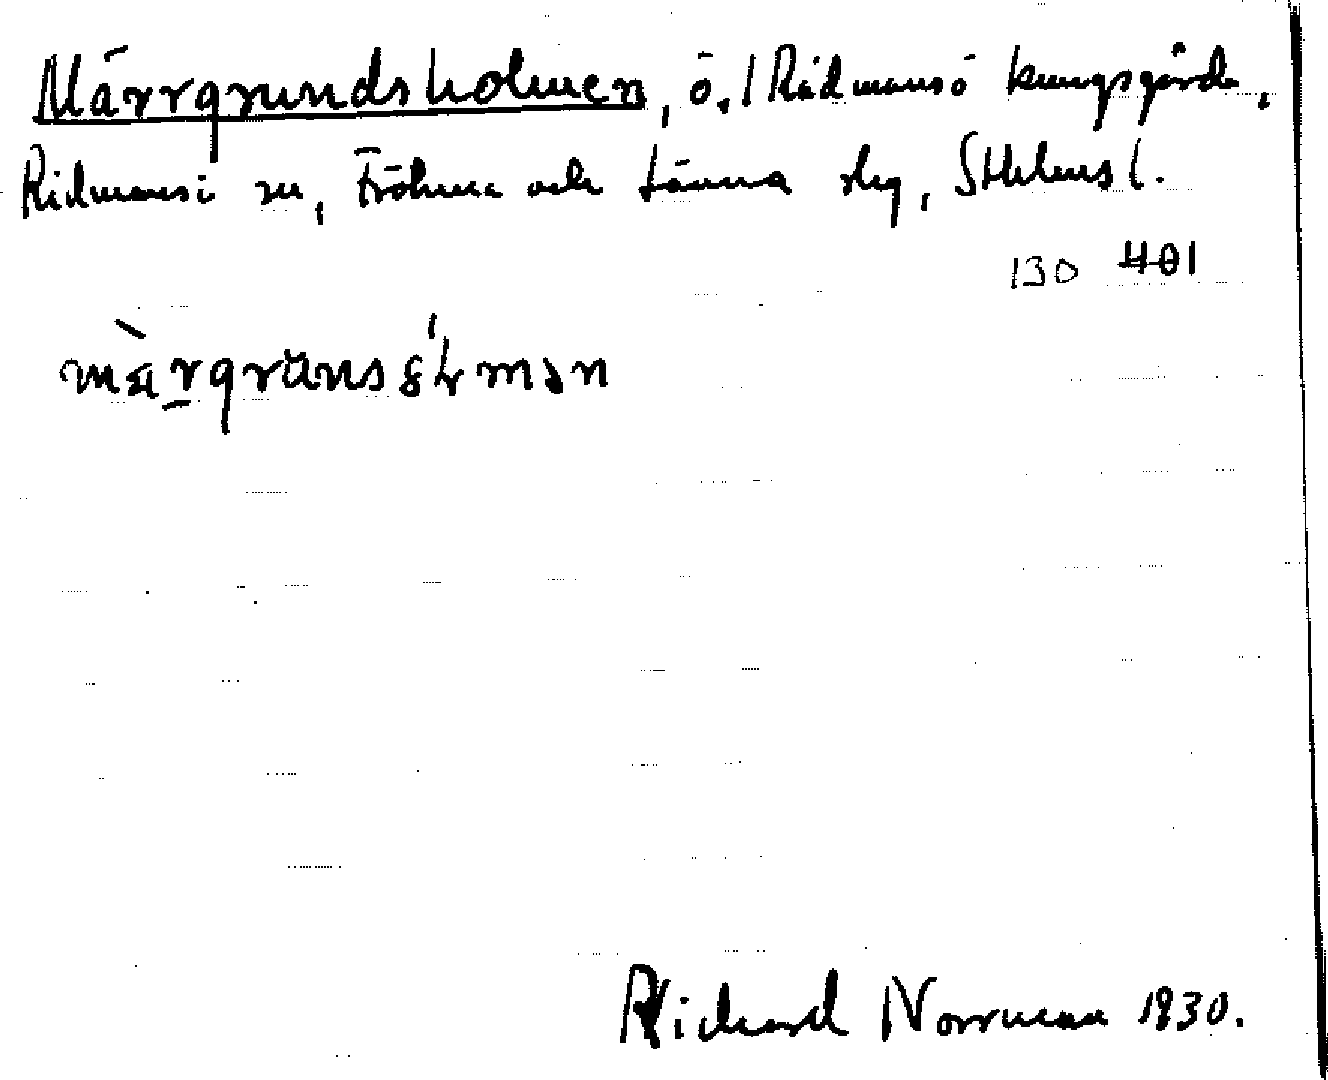 Märrgrundsholmen, ö, / Rådmansö kungsgårde,
Rådmansö sn, Frötuna och Länna slg, Sthlms l.
130 401
Richard Norrman 1930.